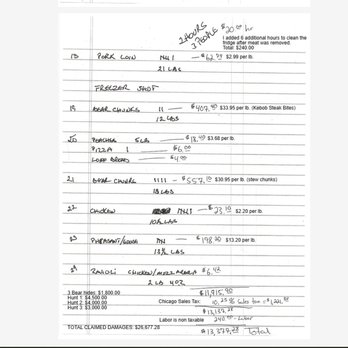 2 HOURS
3 PEOPLE $20.00 hr
I added 6 additional hours to clean the
fridge after meat was removed.
Total: $240.00
18 PORK LOIN $62.79 $2.99 per lb.
21 LBS
FREEZER SHOT
19 BEAR CHUNKS 11 — $407.40 $33.95 per lb. (Kebob Steak Bites)
12 LBS
20 5 LBS — $18.40 $3.68 per lb.
PIZZA 1 $6.00
LOAF BREAD — $4.00
21 BEAR 1111 - $557.10 $30.95 per lb. (stew chunks)
18 LBS
22 CHICKEN — $23.10 $2.20 per lb.
10½ LBS
23 PHEASANT — $198.00 $13.20 per lb.
LBS
24 RAVOLI CHICKEN/MOZZARELLA $6.42
2 LB 4OZ
3 Bear hides: $1,800.00
Hunt 1: $4,500.00
Hunt 2: $4,000.00
Hunt 3: $3,000.00
$11,915.90
Chicago Sales Tax: 10.25% Sales tax =
Labor is non taxable 240.00 - Labor
TOTAL CLAIMED DAMAGES: $26,677.28
$13,377.28 Total